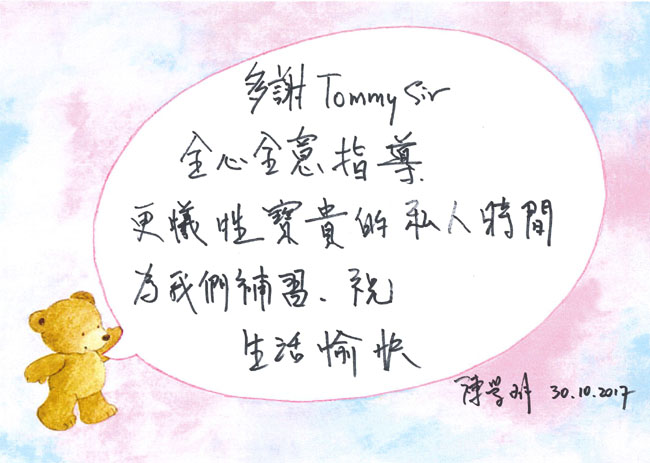 多謝 Tommy Sir
全心全意指導
更犧牲寶貴的私人時間
為我們補習、祝
生活愉快
陳 30.10.2017